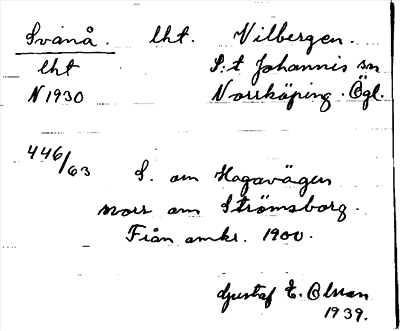 Svanå. lht. Vilbergen.
lht S:t Johannis sn
N 1930 Norrköping. Ögl.
446/63 S. om Hagavägen
norr om Strömsborg.
Från omkr. 1900.
Gustaf E. Olsson
1939.